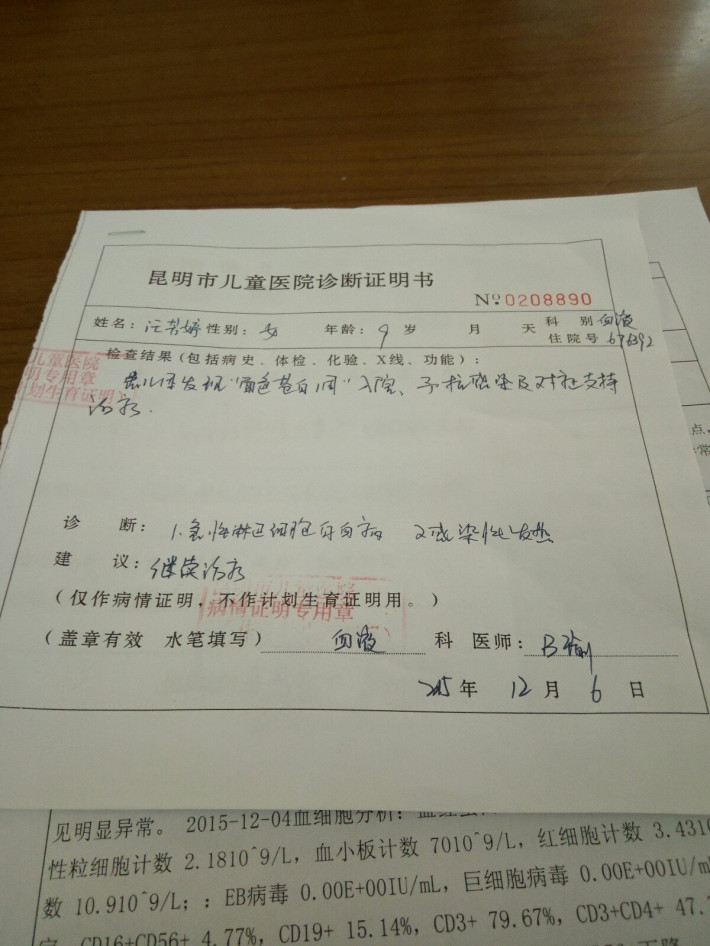 昆明市儿童医院诊断证明书
Nº 0208890
姓名: 性别: 女 年龄: 9 岁 月 天 科 别 血液
住院号 676392
儿童医院
明专用章
划生育证明)
检查结果(包括病史、体检、化验、X线、功能):
患儿因发现"面色苍白1周"入院、予抗感染及对症支持
治疗.
诊 断: 1.急性淋巴细胞白血病 2感染性发热
建 议: 继续治疗
(仅作病情证明,不作计划生育证明用。)
病情证明专用章
(盖章有效 水笔填写) 血液 科 医师:
2015 年 12 月 6 日
点,
常
见明显异常。 2015-12-04血细胞分析:
性粒细胞计数 2.1810^9/L, 血小板计数 7010^9/L, 红细胞计数 3.4310
数 10.910^9/L; : EB病毒 0.00E+00IU/mL, 巨细胞病毒 0.00E+00IU/mL
CD16+CD56+ 4.77%, CD19+ 15.14%, CD3+ 79.67%, CD3+CD4+ 47.